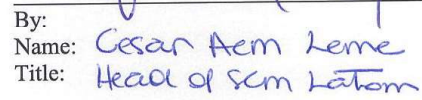 By:
Name: Cesar Aem Leme
Title: Head of SCM Latam